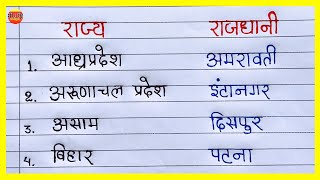 राज्य राजधानी
1. आंध्रप्रदेश अमरावती
2. अरूणाचल प्रदेश इंटानगर
3. असाम दिसपुर
4. बिहार पटना